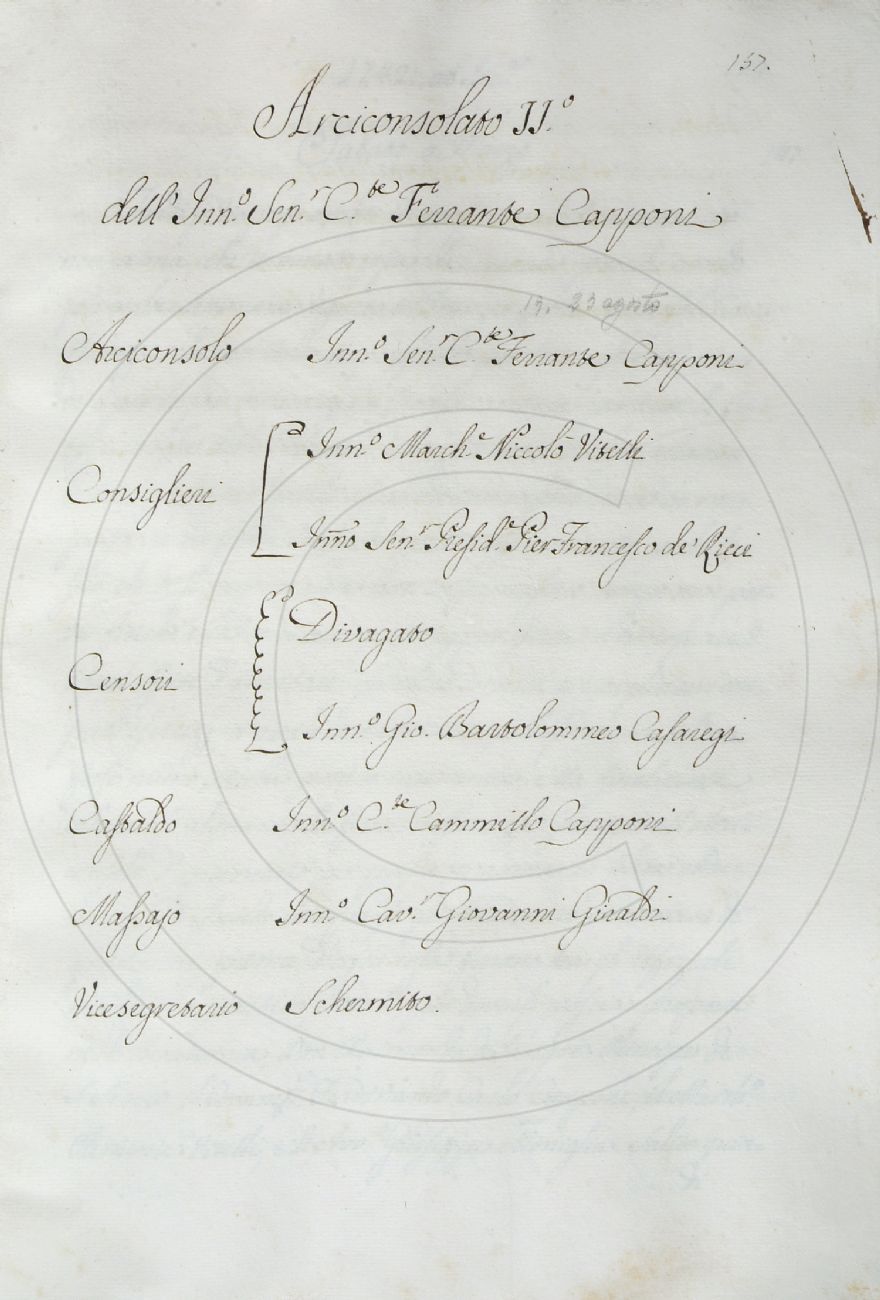 157.
Arciconsolato II.º
dell' Inn.º Sen.r C.te Ferrante Capponi
13. 23 agosto
Arciconsolo Inn.º Sen.r C.te Ferrante Capponi
Consiglieri
Inn.º March.e Niccolò Vitelli
Inñno Sen.r Presid.e Pier Francesco de' Ricci
Censori
Divagato
Inn.º Gio. Bartolommeo Casaregi
Castaldo Inn.º C.te Cammillo Capponi
Massajo Inn.º Cav.r Giovanni Giraldi
Vicesegretario Schermito.